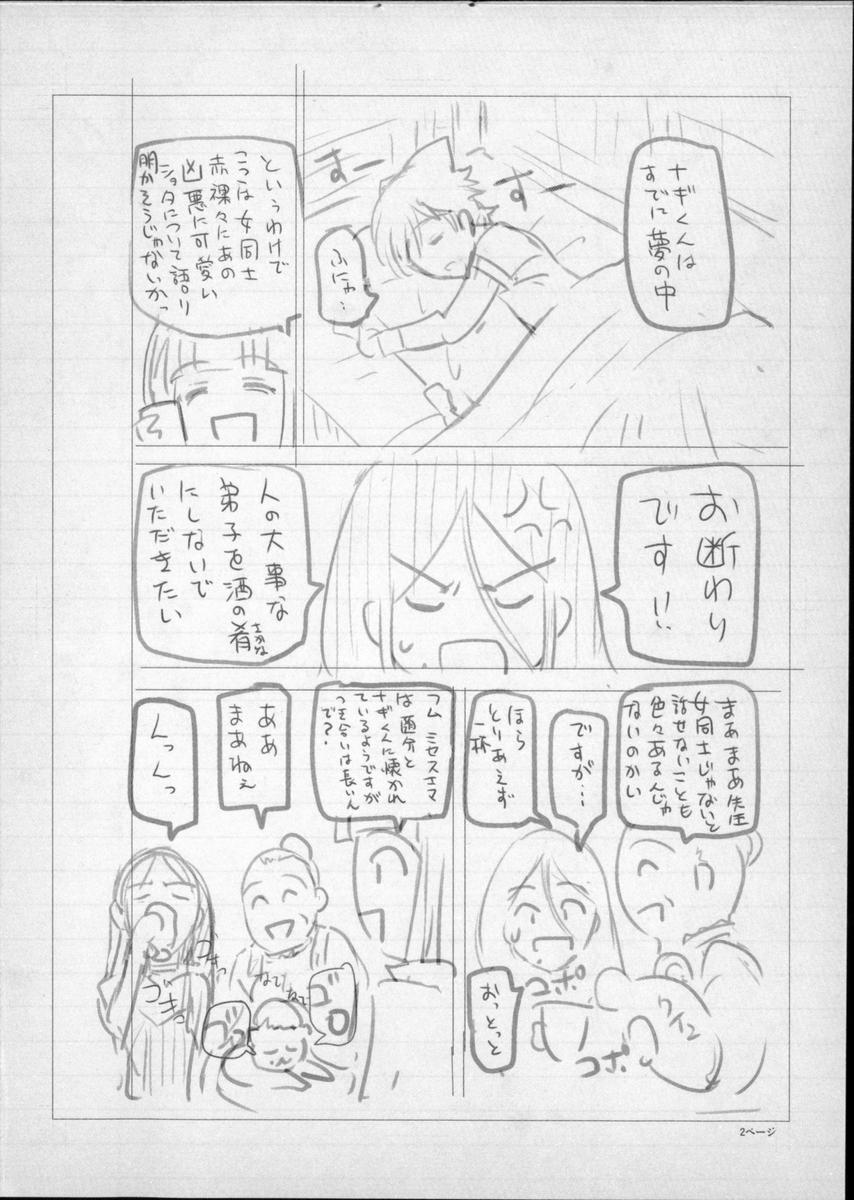 ナギくんは
すでに夢の中
すー
すー
ふにゃ…
というわけで
こっつは女同士
赤裸々にあの
凶悪に可愛い
ショタについて語り
明かそうじゃないかっ
お断わり
です!!
人の大事な
弟子を酒の肴
さかな
にしないで
いただきたい
まあまあ先生
女同士じゃないと
話せないことも
色々あるんじゃ
ないのかい
ですが…
ほら
とりあえず
一杯
おっとっと
コポ
コポ
ワイン
フム ミセスエマ
は随分と
ナギくんに懐かれ
ているようですが
つき合いは長いん
で?
ああ
まあねぇ
んっんっ
ごきゅっ
なでなで
ゴロ
ゴロ
2ページ